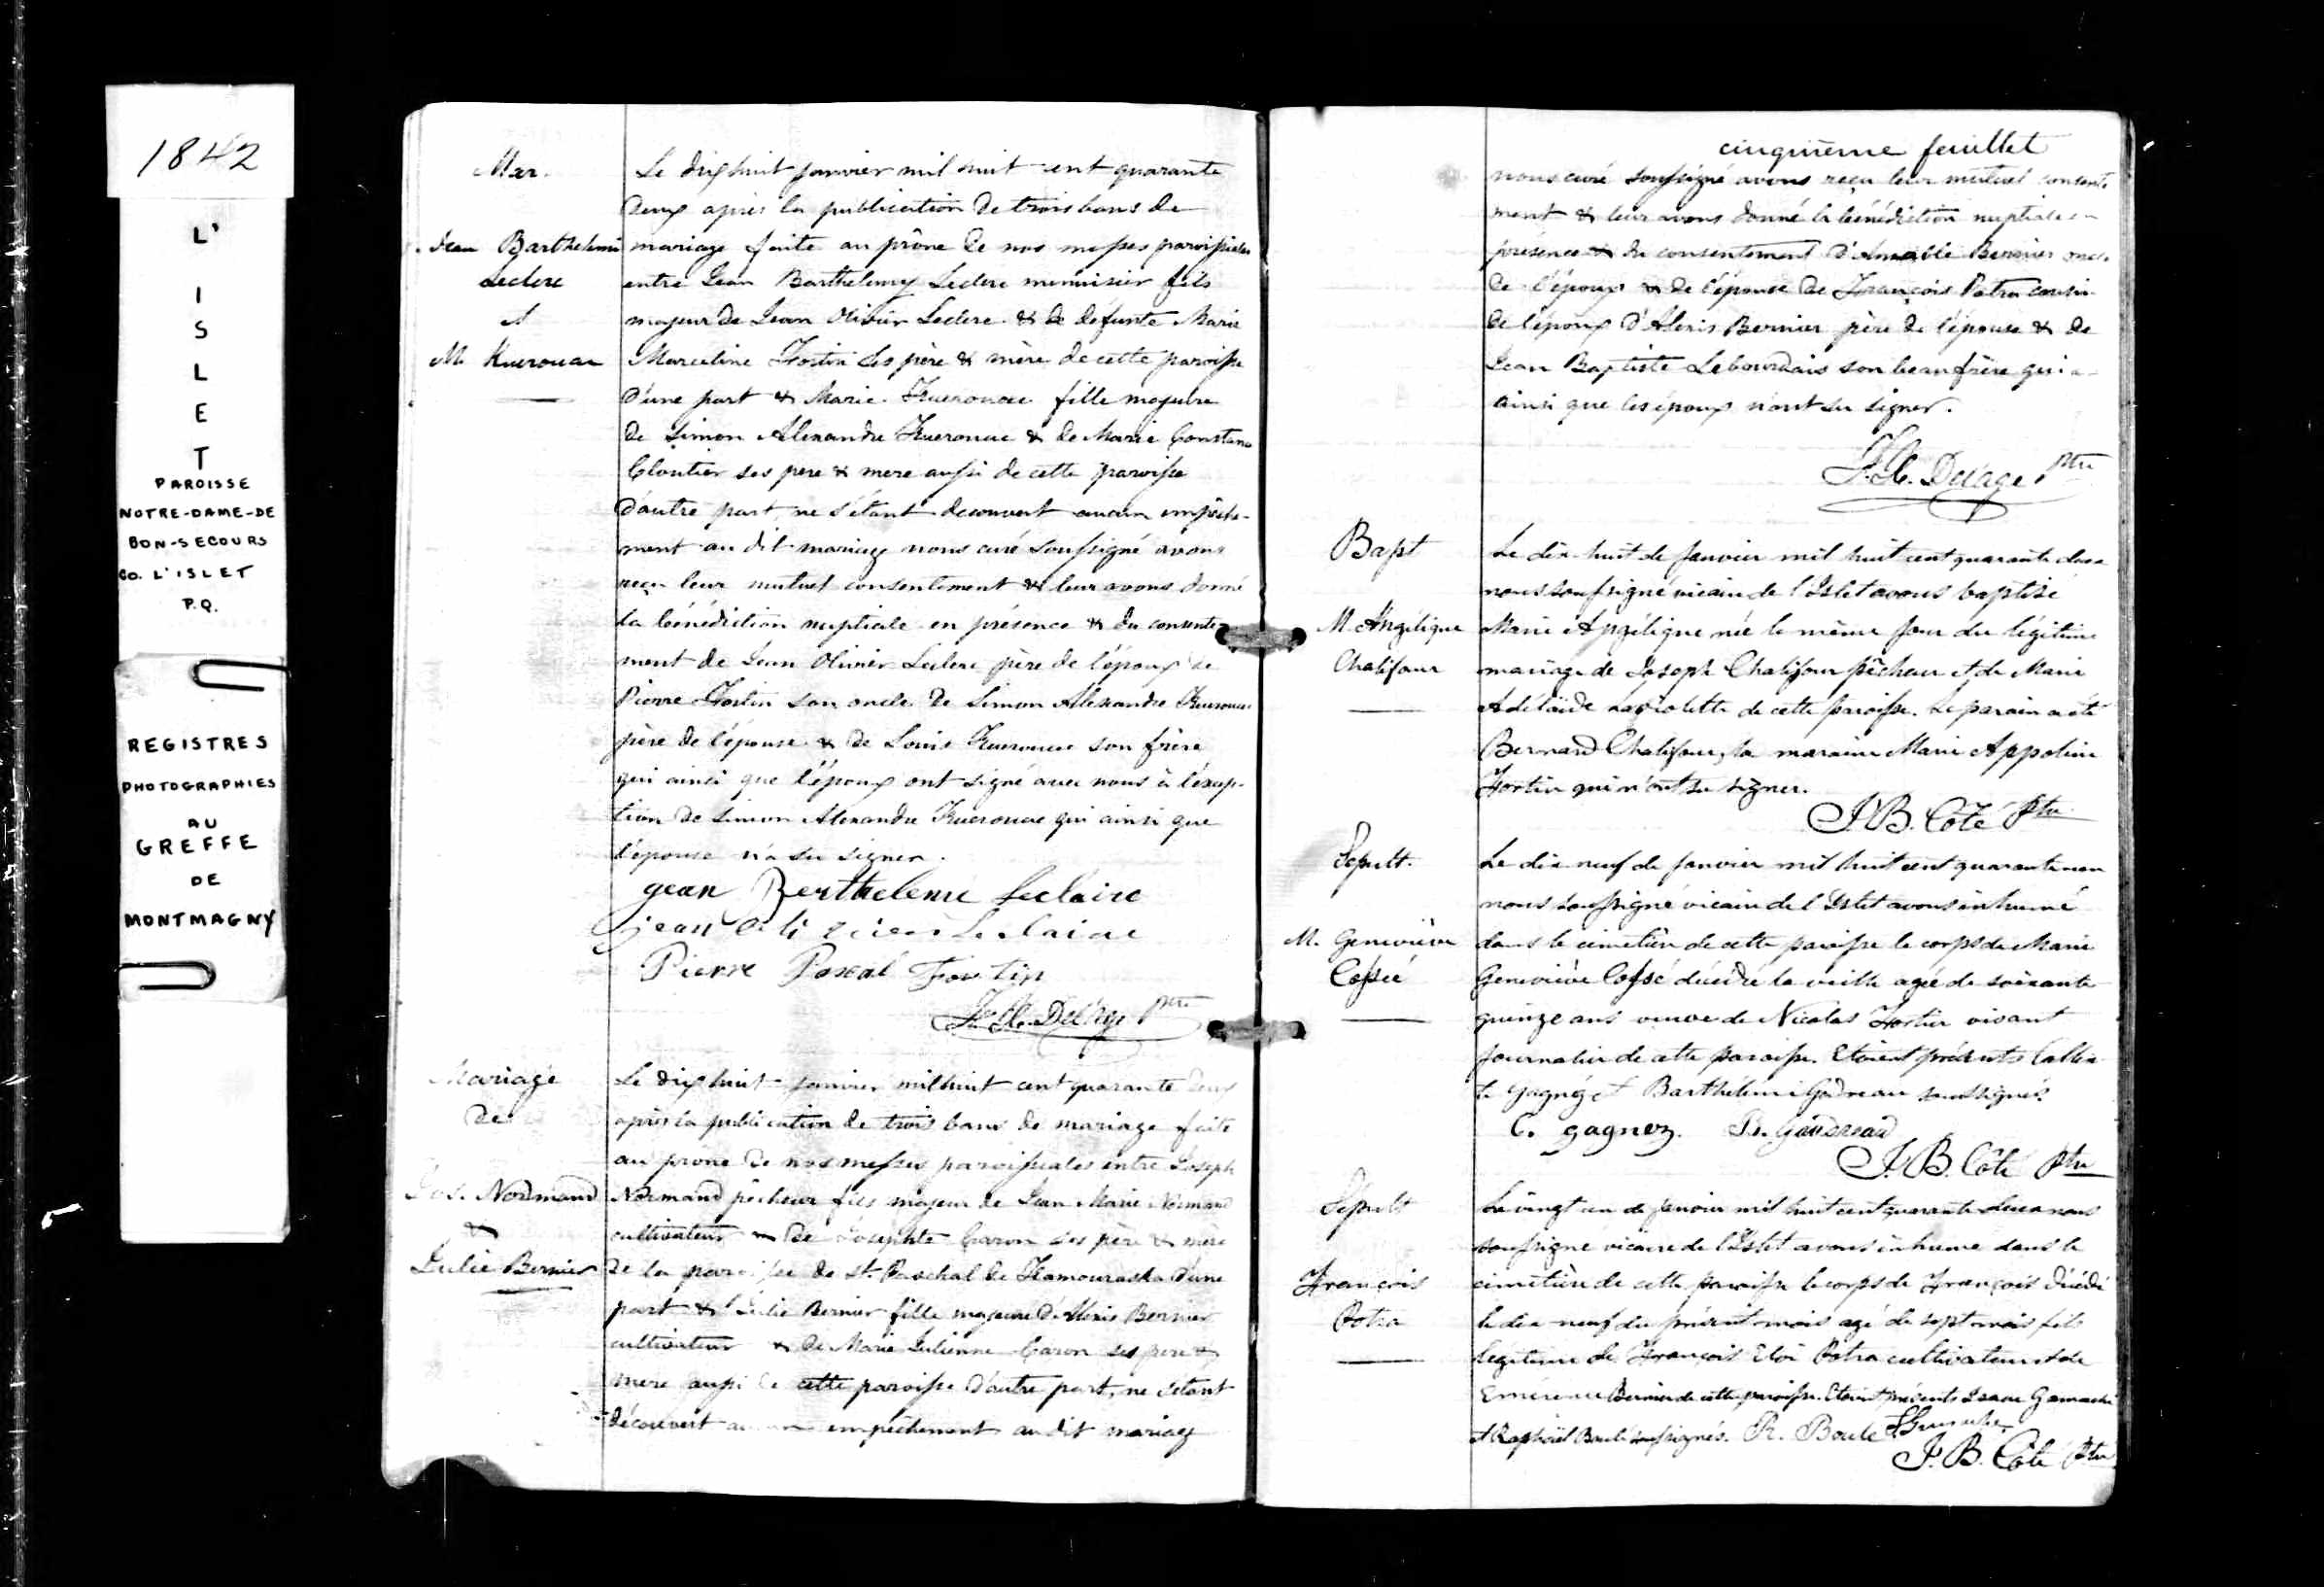 1842
L'
I
S
L
E
T
PAROISSE
NOTRE-DAME-DE
BON-SECOURS
CO. L'ISLET
P.Q.
REGISTRES
PHOTOGRAPHIES
AU
GREFFE
DE
MONTMAGNY
Mar.
Jean Barthelemi
Leclerc
et
M. Kuerouac
Le dixhuit janvier mil huit cent quarante
deux après la publication de trois bans de
mariage faite au prône de nos messes paroissiales
entre Jean Barthelemy Leclerc menuisier fils
majeur de Jean Olivier Leclerc & de défunte Marie
Marceline Fortin ses père & mère de cette paroisse
d'une part & Marie Kuerouac fille majeure
de Simon Alexandre Kuerouac & de Marie Constance
Cloutier ses pere & mere aussi de cette paroisse
d'autre part, ne s'étant decouvert aucun empêche-
ment au dit mariage nous curé soussigné avons
reçu leur mutuel consentement & leur avons donné
la bénédiction nuptiale en présence & du consente-
ment de Jean Olivier Leclerc père de l'époux de
Pierre Fortin son oncle de Simon Alexandre Kuerouac
père de l'épouse & de Louis Kuerouac son frère
qui ainsi que l'époux ont signé avec nous à l'excep-
tion de Simon Alexandre Kuerouac qui ainsi que
l'épouse n'a su signer.
jean Berthelemie Leclaire
jean Leclaire
Pierre Pascal Fortin
F. X. Delage Ptre
Mariage
de
Jos. Normand
&
Julie Bernier
Le dixhuit janvier mil huit cent quarante deux
après la publication de trois bans de mariage faite
au prone de nos messes paroissiales entre Joseph
Normand pêcheur fils majeur de Jean Marie Normand
cultivateur & de Josephte Caron ses père & mère
de la paroisse de St. Paschal de Kamouraska d'une
part & Julie Bernier fille majeure d'Alexis Bernier
cultivateur & de Marie Julienne Caron ses pere &
mere aussi de cette paroisse d'autre part, ne s'étant
découvert aucun empêchement au dit mariage
cinquième feuillet
nous curé soussigné avons reçu leur mutuel consente
ment & leur avons donné la bénédiction nuptiale en
présence & du consentement d'Amable Bernier oncle
de l'époux & de l'épouse de François Potra cousin
de l'époux d'Alexis Bernier père de l'épouse & de
Jean Baptiste Lebourdais son beau frère qui
ainsi que les époux n'ont su signer.
F. X. Delage Ptre
Bapt
M. Angélique
Chalifour
Le dix-huit de Janvier mil huit cent quarante deux
nous soussigné vicaire de l'Islet avons baptisé
Marie Angélique née le même jour du légitime
mariage de Joseph Chalifour pêcheur et de Marie
Adélaïde Laviolette de cette paroisse. Le parain a été
Bernard Chalifour, la maraine Marie Appoline
Fortin qui n'ont su signer.
J. B. Côté Ptre
Sepult.
M. Geneviève
Cossé
Le dix neuf de Janvier mil huit cent quarante
nous soussigné vicaire de l'Islet avons inhumé
dans le cimetière de cette paroisse le corps de Marie
Geneviève Cossé décédée la veille agée de soixante
quinze ans veuve de Nicolas Fortin vivant
journalier de cette paroisse. Etoient présents
Gagné et Barthélémi Godreau soussignés.
C. gagnez. B. Gaudreau
J. B. Côté Ptre
Sépult
François
Potra
Le vingt un de Janvier mil huit cent quarante deux nous
soussigné vicaire de l'Islet avons inhumé dans le
cimetière de cette paroisse le corps de François décédé
le dix neuf du présent mois agé de sept mois fils
legitime de François Eloi Potra cultivateur et de
Emérence Bernier de cette paroisse. Etoient présents Isaac Gamache
et Raphaël Boulé soussignés. R. Boulé I. Gamache
J. B. Côté Ptre